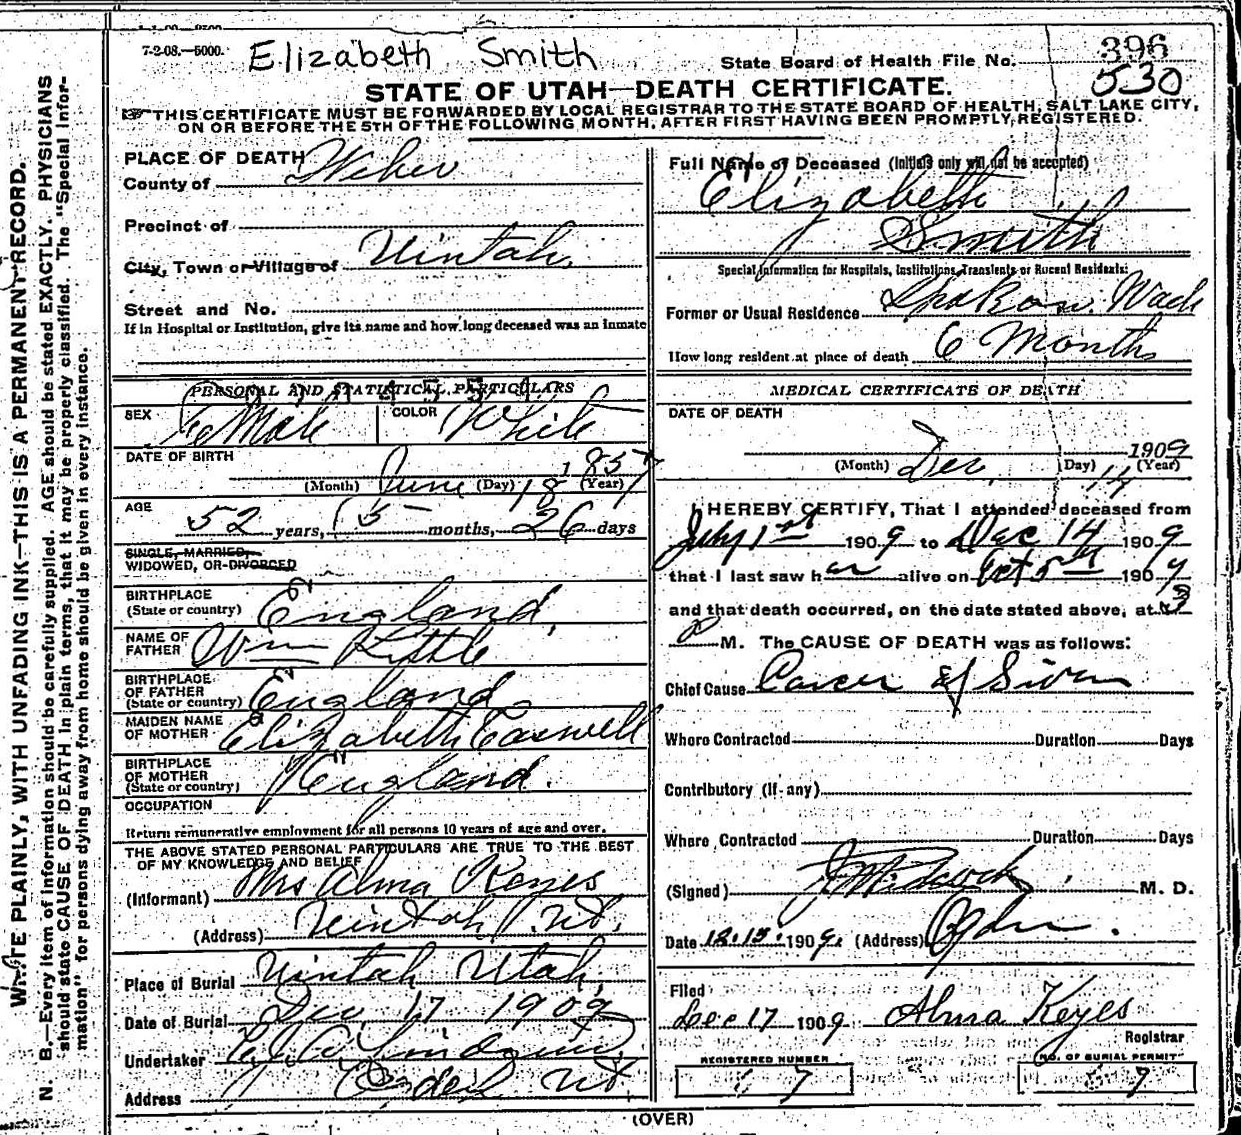 7-2-08.—5000.
Elizabeth Smith
State Board of Health File No. 396
530
STATE OF UTAH—DEATH CERTIFICATE.
THIS CERTIFICATE MUST BE FORWARDED BY LOCAL REGISTRAR TO THE STATE BOARD OF HEALTH, SALT LAKE CITY,
ON OR BEFORE THE 5TH OF THE FOLLOWING MONTH, AFTER FIRST HAVING BEEN PROMPTLY REGISTERED.
WRITE PLAINLY, WITH UNFADING INK—THIS IS A PERMANENT RECORD.
N. B.—Every item of information should be carefully supplied. AGE should be stated EXACTLY. PHYSICIANS
should state CAUSE OF DEATH in plain terms, that it may be properly classified. The "Special Infor-
mation" for persons dying away from home should be given in every instance.
PLACE OF DEATH
County of Weber
Precinct of
City, Town or Village of Uintah
Street and No.
If in Hospital or Institution, give its name and how long deceased was an inmate
PERSONAL AND STATISTICAL PARTICULARS
SEX Female COLOR White
DATE OF BIRTH
(Month) June (Day) 18 1857 (Year)
AGE
52 years, 5 months, 26 days
SINGLE, MARRIED,
WIDOWED, OR DIVORCED
BIRTHPLACE
(State or country) England
NAME OF
FATHER Wm Kittle
BIRTHPLACE
OF FATHER
(State or country) England
MAIDEN NAME
OF MOTHER Elizabeth Caswell
BIRTHPLACE
OF MOTHER
(State or country) England.
OCCUPATION
Return remunerative employment for all persons 10 years of age and over.
THE ABOVE STATED PERSONAL PARTICULARS ARE TRUE TO THE BEST
OF MY KNOWLEDGE AND BELIEF
(Informant) Mrs Alma Keyes
(Address) Uintah Ut.
Place of Burial Uintah Utah
Date of Burial Dec 17 1909
Undertaker
Address Ogden Ut
Full Name of Deceased (Initials only will not be accepted)
Elizabeth
Smith
Special Information for Hospitals, Institutions, Transients or Recent Residents:
Former or Usual Residence Spokane Wash
How long resident at place of death 6 Months
MEDICAL CERTIFICATE OF DEATH
DATE OF DEATH
(Month) Dec. (Day) 14 1909 (Year)
I HEREBY CERTIFY, That I attended deceased from
July 1st 1909 to Dec 14 1909
that I last saw her alive on Oct 5th 1909
and that death occurred, on the date stated above, at 3
M. The CAUSE OF DEATH was as follows:
Chief Cause Cancer of
Where Contracted Duration Days
Contributory (If any)
Where Contracted Duration Days
(Signed) M. D.
Date 12.15. 1909. (Address) Ogden.
Filed
Dec 17 1909 Alma Keyes
Registrar
REGISTERED NUMBER
17
NO. OF BURIAL PERMIT
7
(OVER)